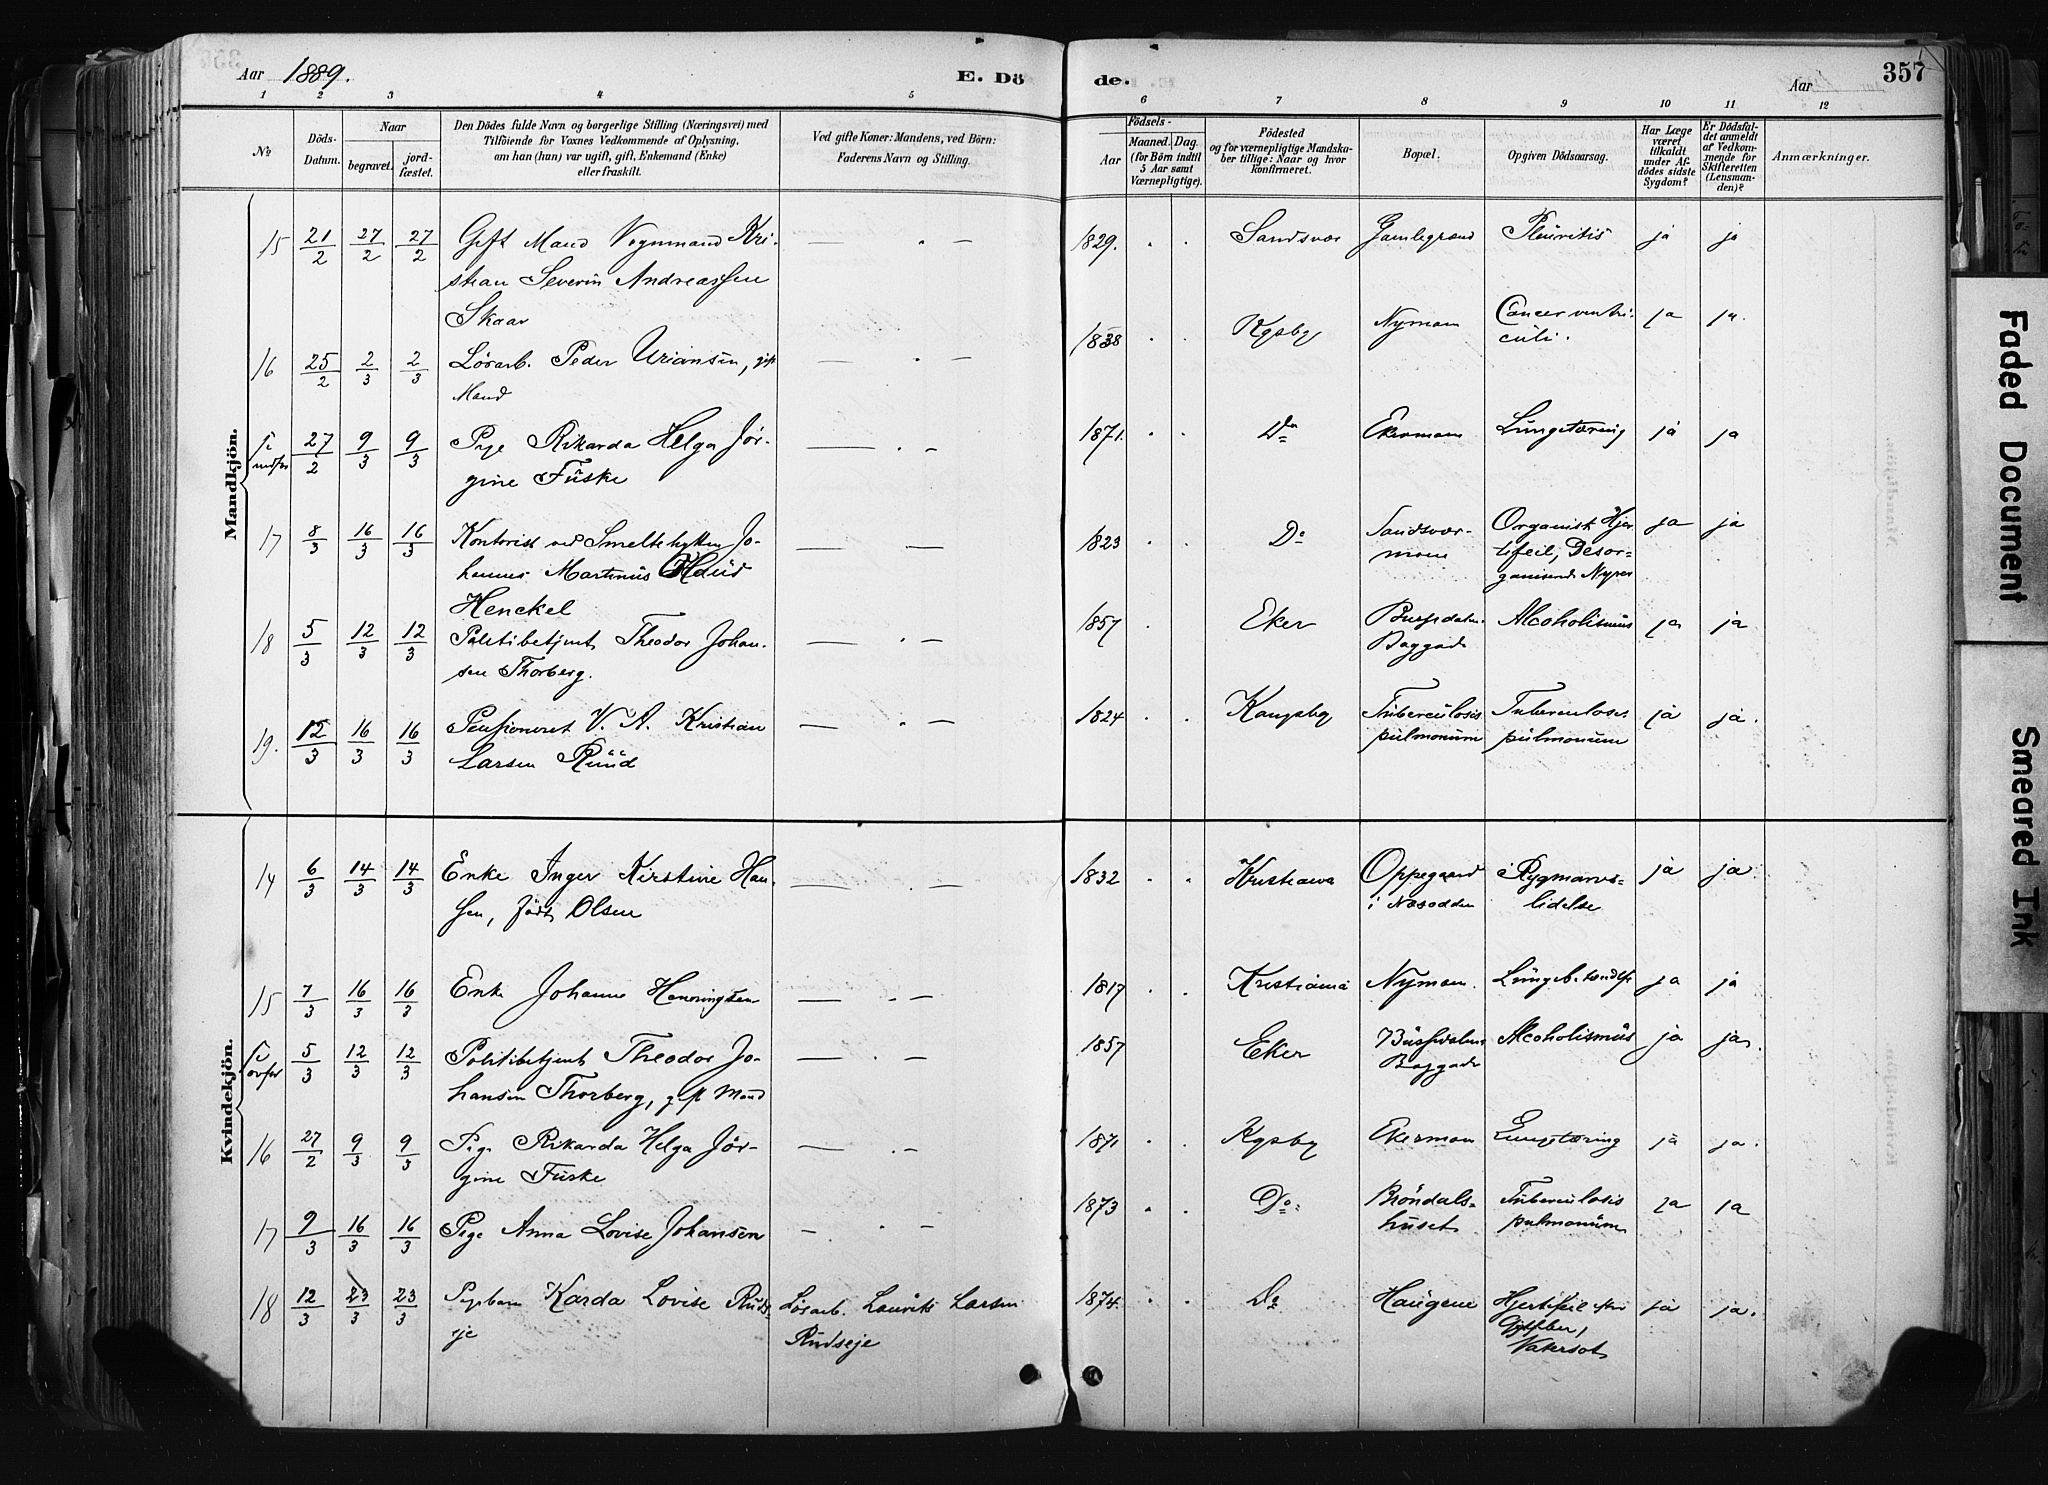 Aar 1889.
E. Dö
de.
Aar
357
1 2 3 4 5 6 7 8 9 10 11 12
No
Döds-Datum.
Naar
begravet.
jordfæstet.
Den Dödes fulde Navn og borgerlige Stilling (Næringsvei) med
Tilföiende for Voxnes Vedkommende af Oplysning,
om han (hun) var ugift, gift, Enkemand (Enke)
eller fraskilt.
Ved gifte Koner: Mandens, ved Börn:
Faderens Navn og Stilling.
Födsels-
Aar
Maaned. Dag.
(for Börn indtil
5 Aar samt
Værnepligtige).
Födested
og for værnepligtige Mandskaber
tillige: Naar og hvor
konfirmeret.
Bopæl.
Opgiven Dödsaarsag.
Har Læge
været
tilkaldt
under Afdödes
sidste
Sygdom?
Er Dödsfaldet
anmeldt
af Vedkommende
for
Skifteretten
(Lensmanden)?
Anmærkninger.
Mandkjön.
15 21/2 27/2 27/2 Gift Mand Vognmand Kri- — " — 1829. " " Sandsvær Gamlegrænd Pleuritis ja ja
stian Severin Andreassen
Skaar
16 25/2 2/3 2/3 Lösarb. Peder Uriansen, gift — " — 1838 " " Kgsby Nymoen Cancer ventri- ja ja.
Mand culi.
27/2 9/3 9/3 Pige Rikarda Helga Jör- — " — 1871. " " Do Ekermoen Lungetæring ja ja
gine Fuske
17 8/3 16/3 16/3 Kontorist ved Smeltehytten Jo- — — 1823 " " Do Sandsvær- Organisk Hjer- ja ja
hannes Martinus Haud moen tefeil, Desor-
Henckel ganiserende Nyrer
18 5/3 12/3 12/3 Politibetjent Theodor Johan- — " — 1857 " Eker Alcoholismus ja ja
sen Thorberg. Baggade
19. 12/3 16/3 16/3 Pensioneret V. A. Kristian — " — 1824 " " Kongsby Tuberculosis Tuberculosis ja ja.
Larsen Ruud pulmonum pulmonum
Kvindekjön.
14 6/3 14/3 14/3 Enke Inger Kirstine Han- — " — 1832 " " Kristiania Oppegaard Rygmarvs- ja ja.
sen, födt Olsen i Næsodden lidelse
15 7/3 16/3 16/3 Enke Johanne Henningsen — " — 1817 " " Kristiania Nymoen. Lungebetændelse ja ja
5/3 12/3 12/3 Politibetjent Theodor Jo- — " — 1857 Eker Alcoholismus ja ja.
hansen Thorberg, gift Mand Baggade
16 27/2 9/3 9/3 Pige Rikarda Helga Jör- — " — 1871 " " Kgsby Ekermoen Lungetæring ja ja.
gine Fuske
17 9/3 16/3 16/3 Pige Anna Lovise Johansen — " — 1873 " " Do Bröndals- Tuberculosis ja ja
huset pulmonum
18 12/3 23/3 23/3 Pigebarn Karda Lovise Ruds- Lösarb. Lauritz Larsen 1874. " " Do Haugene Hjertefeil ja ja.
eje Rudseje
Vatersot
Faded Document
Smeared Ink